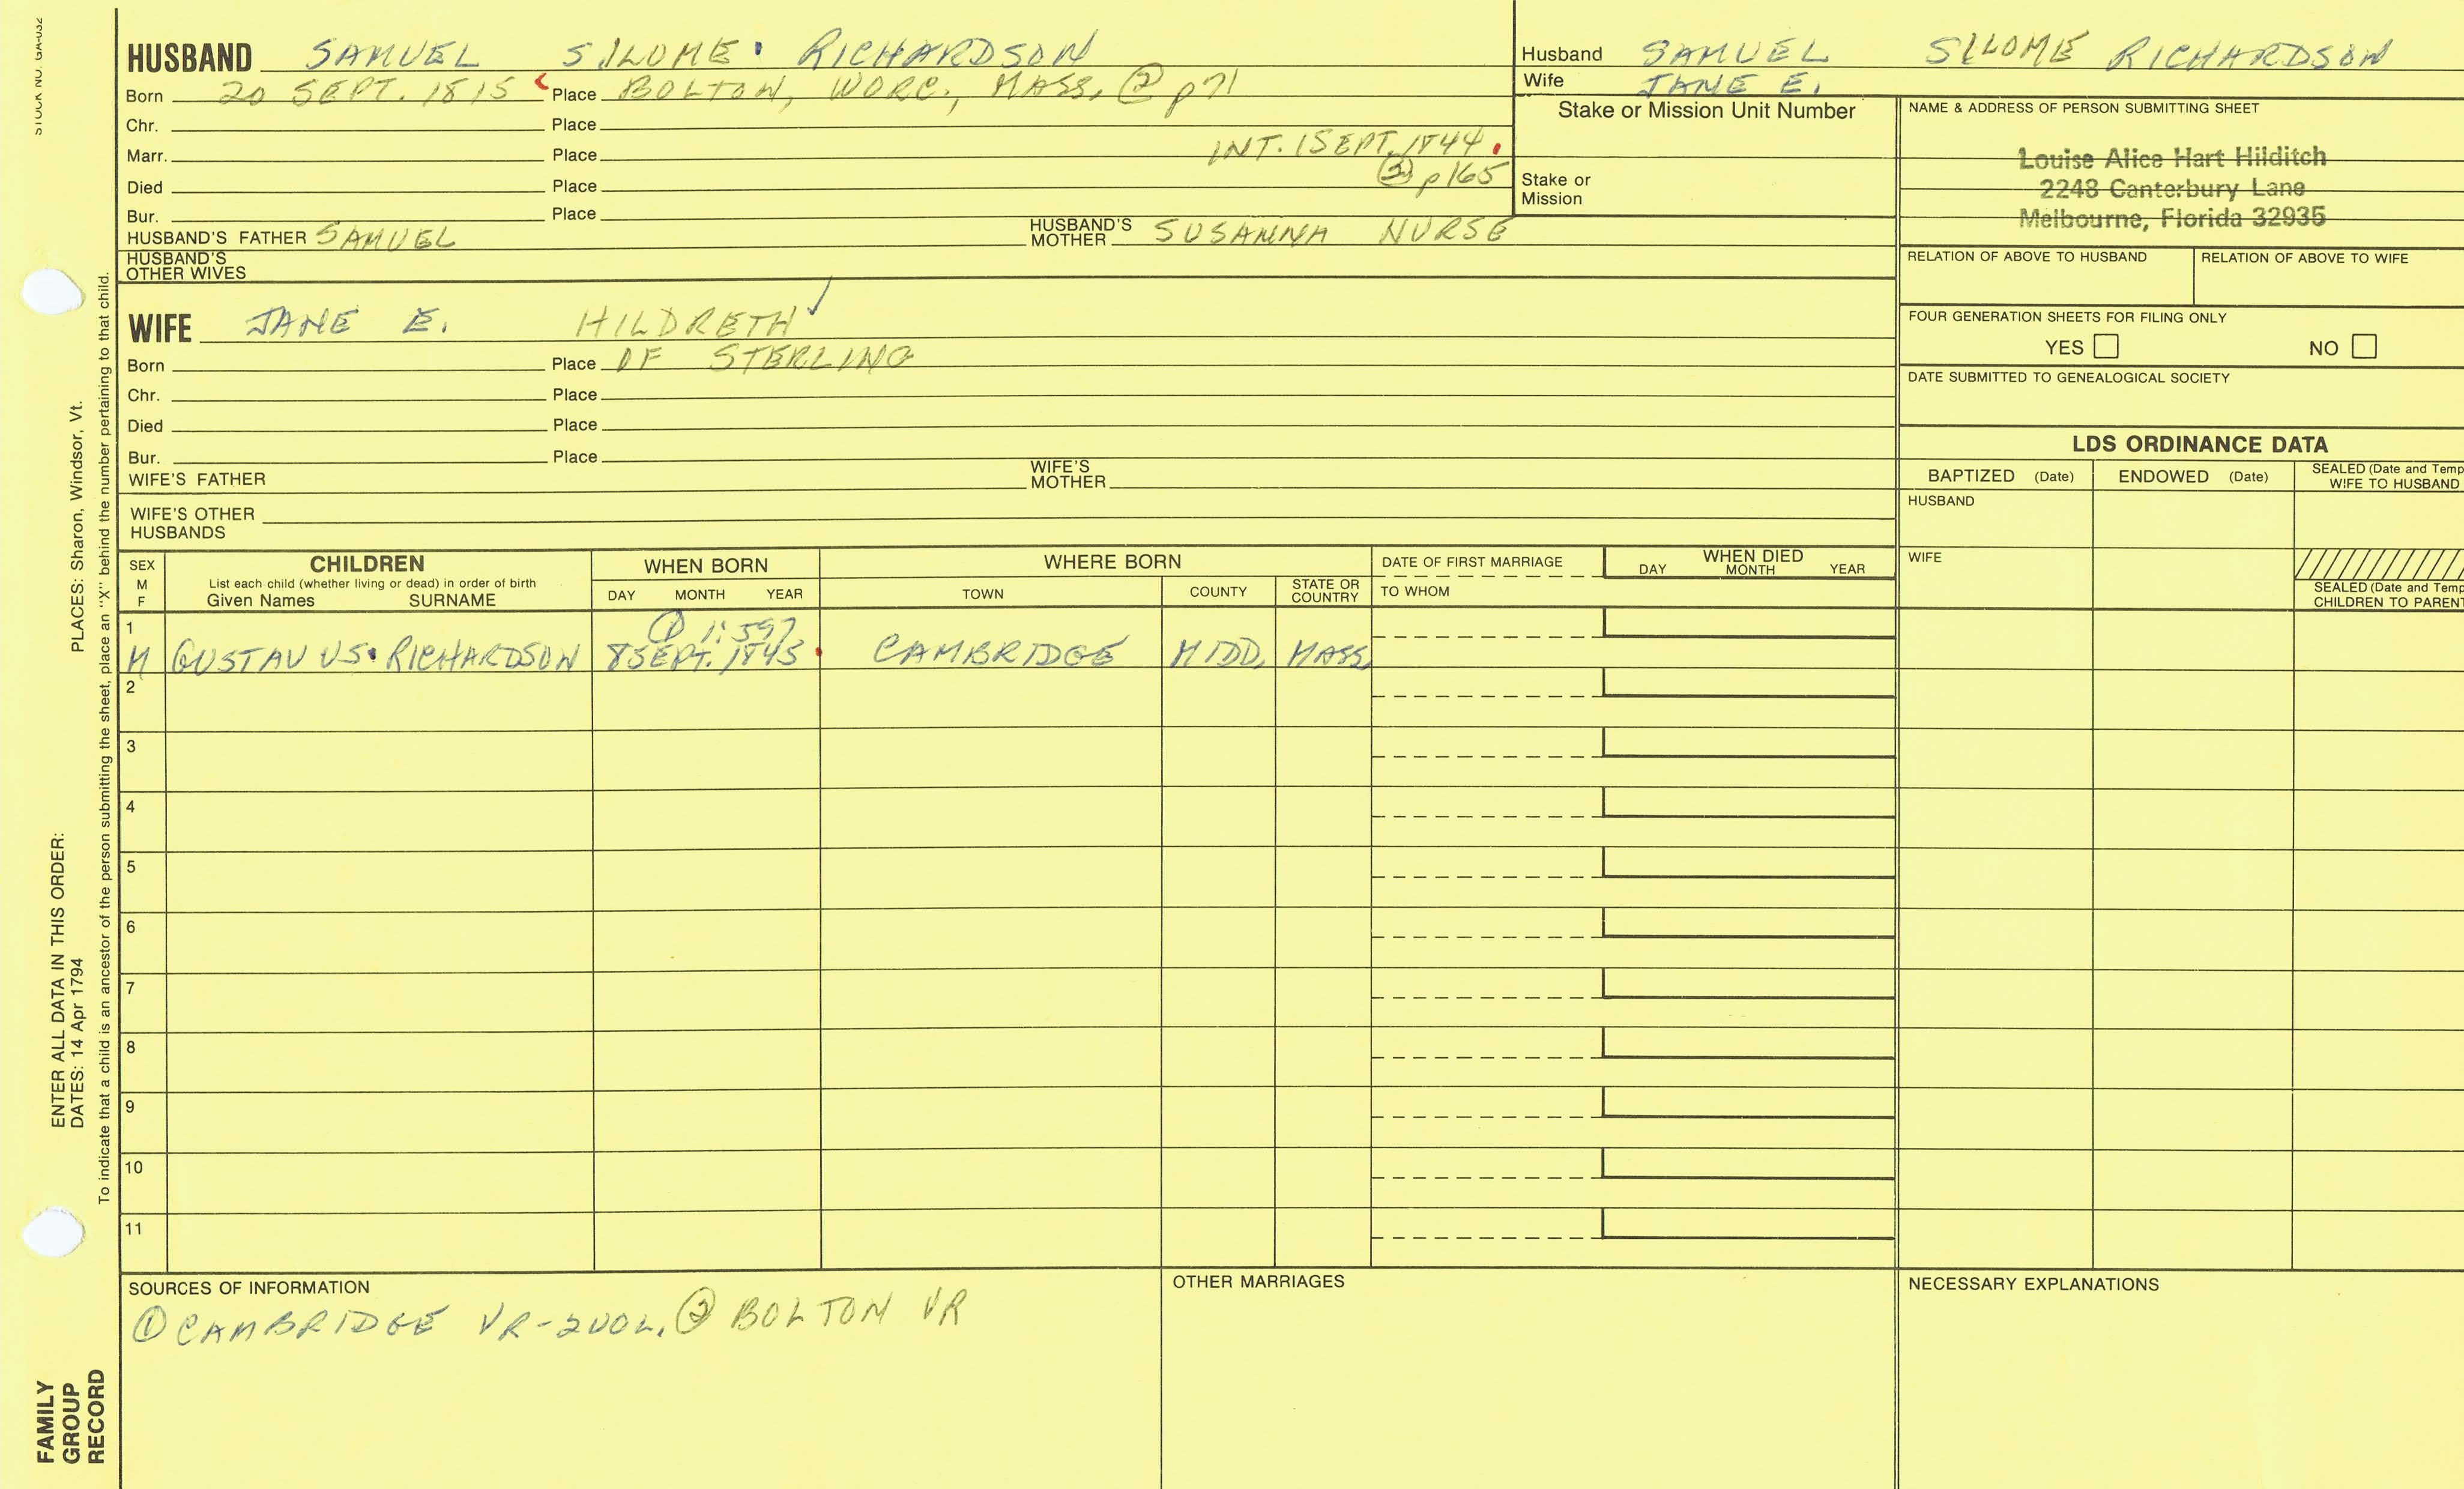 STOCK NO. GA-032
HUSBAND SAMUEL SILOME RICHARDSON
Born 20 SEPT. 1815 Place BOLTON, WORC., MASS. ② p71
Chr. Place
Marr. Place INT. 1 SEPT. 1844.
Died Place ② p165
Bur. Place
HUSBAND'S FATHER SAMUEL HUSBAND'S MOTHER SUSANNA NURSE
HUSBAND'S OTHER WIVES
WIFE JANE E. HILDRETH
Born Place OF STERLING
Chr. Place
Died Place
Bur. Place
WIFE'S FATHER WIFE'S MOTHER
WIFE'S OTHER HUSBANDS
Husband SAMUEL SILOME RICHARDSON
Wife JANE E.
Stake or Mission Unit Number
Stake or
Mission
NAME & ADDRESS OF PERSON SUBMITTING SHEET
Louise Alice Hart Hilditch
2248 Canterbury Lane
Melbourne, Florida 32935
RELATION OF ABOVE TO HUSBAND RELATION OF ABOVE TO WIFE
FOUR GENERATION SHEETS FOR FILING ONLY
YES NO
DATE SUBMITTED TO GENEALOGICAL SOCIETY
LDS ORDINANCE DATA
BAPTIZED (Date) ENDOWED (Date) SEALED (Date and Temp
WIFE TO HUSBAND
HUSBAND
WIFE
SEALED (Date and Temp
CHILDREN TO PARENT
SEX
M
F
CHILDREN
List each child (whether living or dead) in order of birth
Given Names SURNAME
WHEN BORN
DAY MONTH YEAR
WHERE BORN
TOWN COUNTY STATE OR COUNTRY
DATE OF FIRST MARRIAGE
TO WHOM
WHEN DIED
DAY MONTH YEAR
1 ① 1:597
M GUSTAVUS RICHARDSON 8 SEPT. 1845 CAMBRIDGE MIDD. MASS.
2
3
4
5
6
7
8
9
10
11
SOURCES OF INFORMATION
① CAMBRIDGE VR-2VOL. ② BOLTON VR
OTHER MARRIAGES
NECESSARY EXPLANATIONS
PLACES: Sharon, Windsor, Vt.
ENTER ALL DATA IN THIS ORDER:
DATES: 14 Apr 1794
To indicate that a child is an ancestor of the person submitting the sheet, place an "X" behind the number pertaining to that child.
FAMILY
GROUP
RECORD